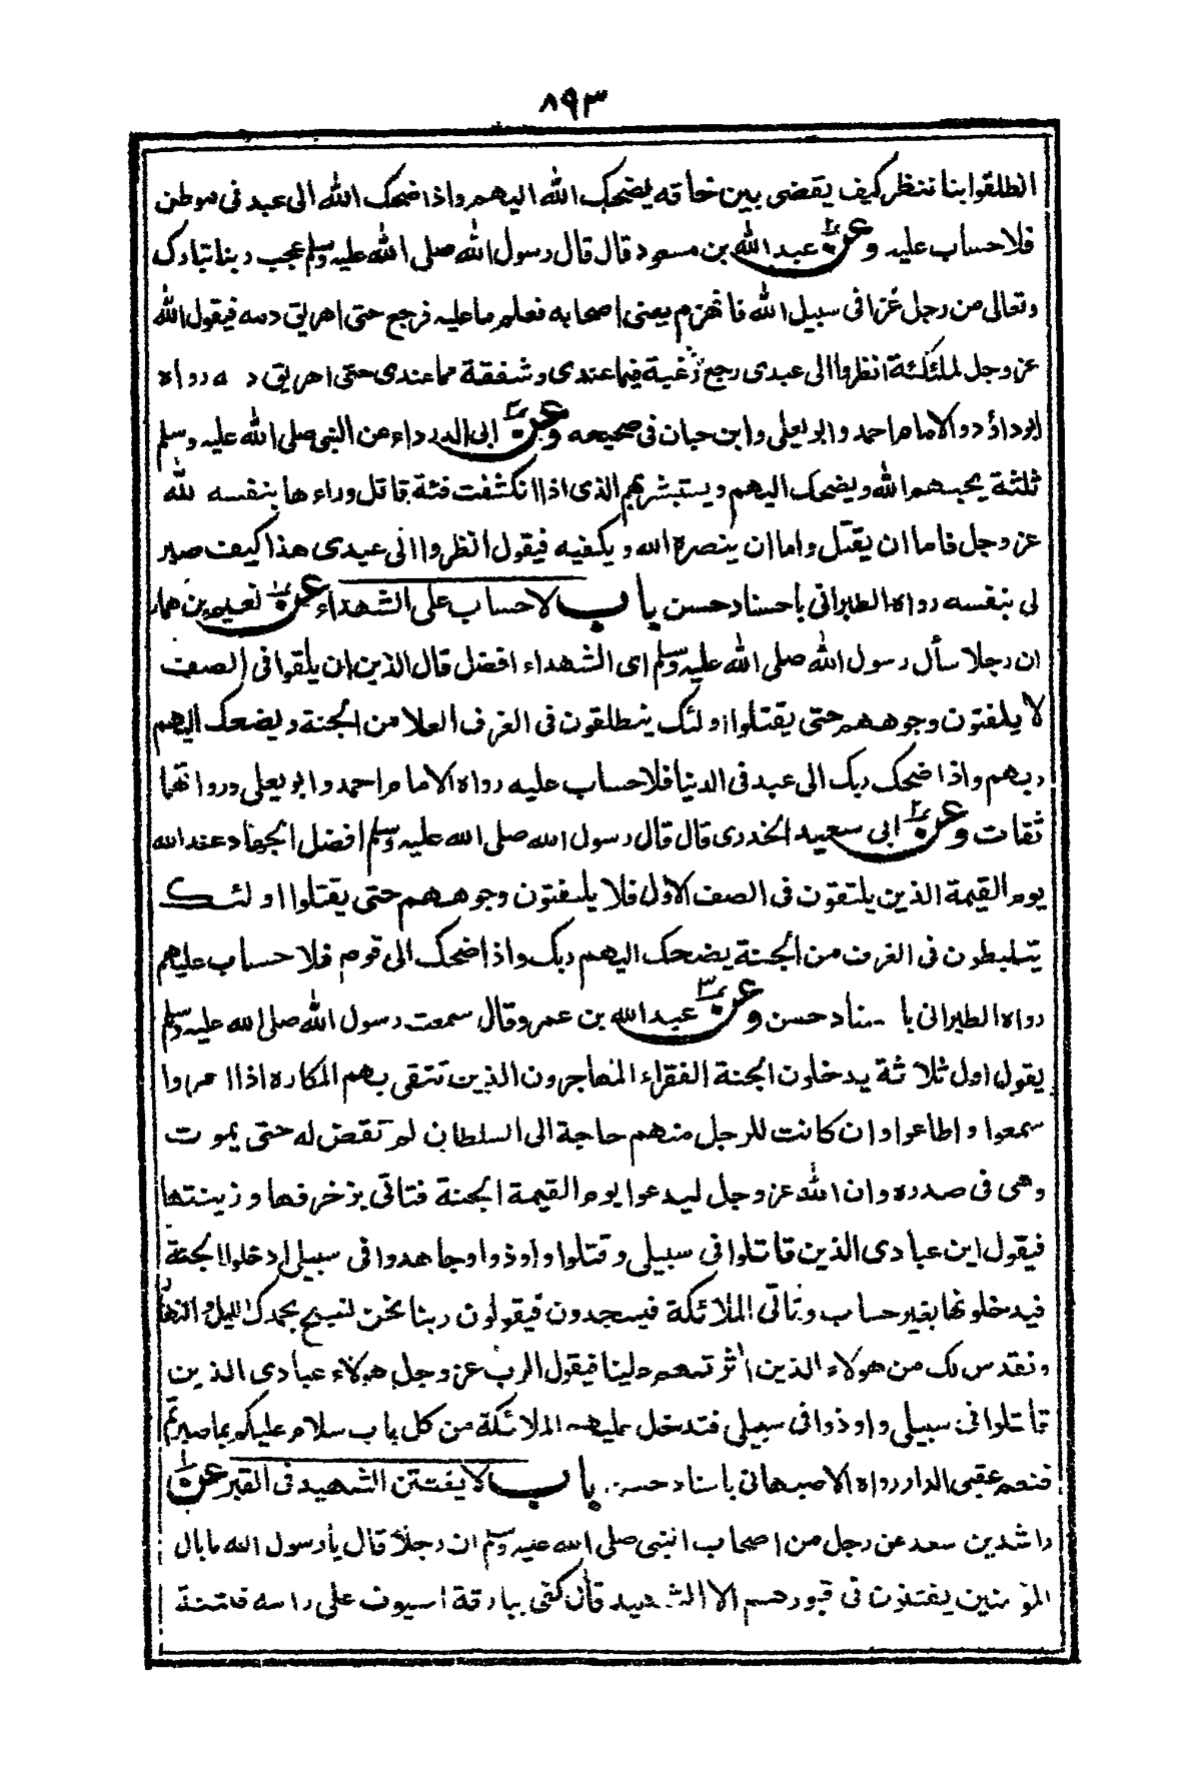 ٨٩٣
انطلقوا بنا ننظر كيف يقضى بين خلقه يضحك الله اليهم واذا ضحك الله الى عبد فى موطن
فلا حساب عليه وعن عبد الله بن مسعود قال قال رسول الله صلى الله عليه وسلم عجب ربنا تبارك
وتعالى من رجل غزا فى سبيل الله فانهزم يعنى اصحابه فعلم ما عليه فرجع حتى اهريق دمه فيقول الله
عز وجل لملئكته انظروا الى عبدى رجع رغبة فيما عندى وشفقة مما عندى حتى اهريق دمه رواه
ابو داؤد والامام احمد وابو يعلى وابن حبان فى صحيحه وعن ابى الدرداء عن النبى صلى الله عليه وسلم
ثلثة يحبهم الله ويضحك اليهم ويستبشر بهم الذى اذا انكشفت فئة قاتل وراءها بنفسه لله
عز وجل فاما ان يقتل واما ان ينصره الله ويكفيه فيقول انظروا الى عبدى هذا كيف صبر
لى بنفسه رواه الطبرانى باسناد حسن باب لا حساب على الشهداء عن نعيم بن همار
ان رجلا سأل رسول الله صلى الله عليه وسلم اى الشهداء افضل قال الذين ان يلقوا فى الصف
لا يلفتون وجوههم حتى يقتلوا اولئك ينطلقون فى الغرف العلا من الجنة ويضحك اليهم
ربهم واذا ضحك ربك الى عبد فى الدنيا فلا حساب عليه رواه الامام احمد وابو يعلى ورواتهما
ثقات وعن ابى سعيد الخدرى قال قال رسول الله صلى الله عليه وسلم افضل الجهاد عند الله
يوم القيمة الذين يلتقون فى الصف الاول فلا يلفتون وجوههم حتى يقتلوا اولئك
يتلبطون فى الغرف من الجنة يضحك اليهم ربك واذا ضحك الى قوم فلا حساب عليهم
رواه الطبرانى باسناد حسن وعن عبد الله بن عمرو قال سمعت رسول الله صلى الله عليه وسلم
يقول اول ثلاثة يدخلون الجنة الفقراء المهاجرون الذين تتقى بهم المكاره اذا امروا
سمعوا واطاعوا وان كانت للرجل منهم حاجة الى السلطان لم تقض له حتى يموت
وهى فى صدره وان الله عز وجل ليدعوا يوم القيمة الجنة فتاتى بزخرفها وزينتها
فيقول اين عبادى الذين قاتلوا فى سبيلى وقتلوا واوذوا وجاهدوا فى سبيلى ادخلوا الجنة
فيدخلونها بغير حساب وتاتى الملائكة فيسجدون فيقولون ربنا نحن نسبح بحمدك الليل والنهار
ونقدس لك من هولاء الذين اثرتهم علينا فيقول الرب عز وجل هولاء عبادى الذين
قاتلوا فى سبيلى واوذوا فى سبيلى فتدخل عليهم الملائكة من كل باب سلام عليكم بما صبرتم
فنعم عقبى الدار رواه الاصبهانى باسناد حسن باب لا يفتتن الشهيد فى القبر عن
راشد بن سعد عن رجل من اصحاب النبى صلى الله عليه وسلم ان رجلا قال يا رسول الله ما بال
المؤمنين يفتنون فى قبورهم الا الشهيد قال كفى ببارقة السيوف على راسه فتنة